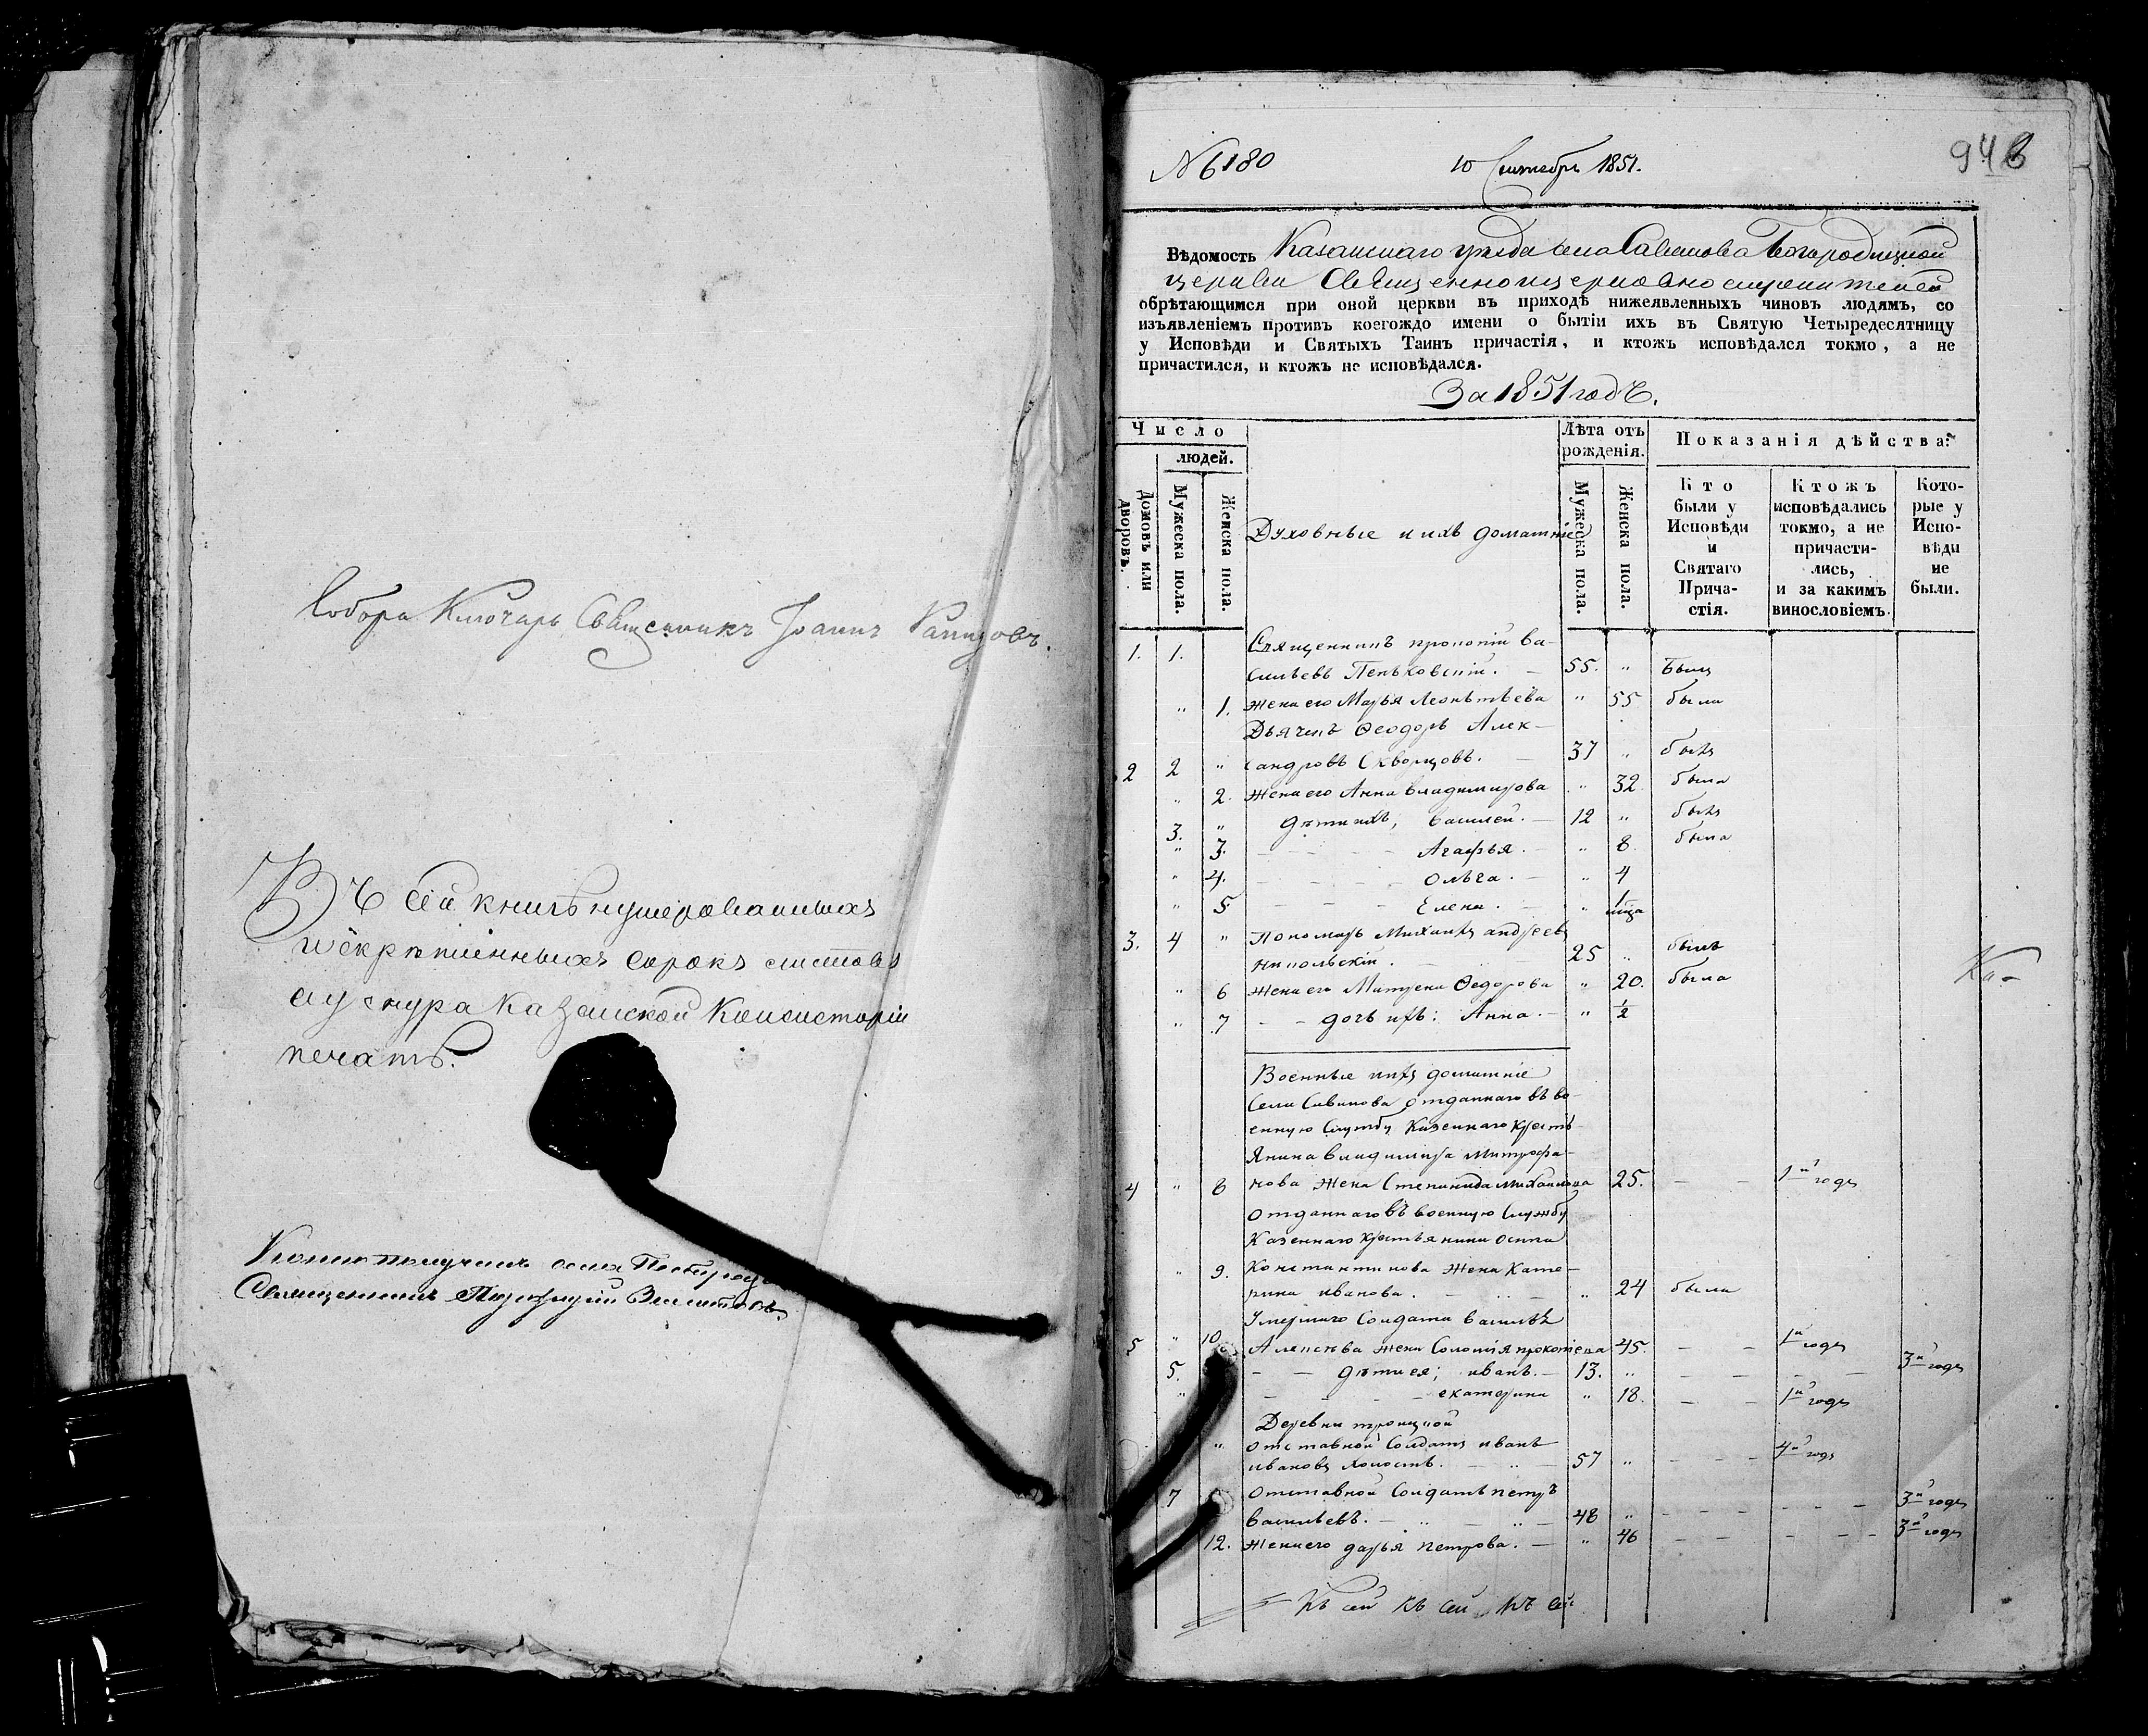 Собора Ключарь Священникъ Іоаннъ
Въ сей книгѣ нумерованныхъ
и скрѣпленныхъ сорокъ листовъ
а у снура Казанской Консисторіи
печать.
Копію получилъ села
Священникъ
№ 6180
10 Сентября 1851.
948
Вѣдомость Казанскаго уѣзда села Савинова Богородицкой
церкви Священноцерковнослужителей
обрѣтающимся при оной церкви въ приходѣ нижеявленныхъ чиновъ людямъ, со
изъявленіемъ противъ коегождо имени о бытіи ихъ въ Святую Четыредесятницу
у Исповѣди и Святыхъ Таинъ причастія, и ктожъ исповѣдался токмо, а не
причастился, и ктожъ не исповѣдался.
За 1851 годъ.
Число
людей.
Домовъ или дворовъ.
Мужеска пола.
Женска пола.
Духовные и ихъ домашніе
Лѣта отъ рожденія.
Мужеска пола.
Женска пола.
Показанія дѣйства:
Кто были у Исповѣди и Святаго Прича-стія.
Ктожъ исповѣдались токмо, а не причасти-лись, и за какимъ винословіемъ.
Кото-рые у Испо-вѣди не были.
1. 1. Священникъ прокопій ва-
сильевъ Пеньковскій. — 55. " былъ
" 1. жена его Марья Леонтьева " 55 была
Дьячекъ Ѳеодоръ Алек-
2 2 " сандровъ Скворцовъ. — 37 " былъ
" 2. жена его Анна владимирова " 32. была
3. " дѣти ихъ, василей. — 12 " былъ
" 3. — — — — Агафья. — " 8 была
" 4. — — — — Ольга. — " 4
" 5 — — — — Елена. — " 1 мца
3. 4 " Пономарь Михаилъ андреевъ
никольскій. 25 " былъ
" 6 жена его Матрена Ѳедорова " 20. была
" 7 — — дочь ихъ: Анна. — " 1/2
Ка-
Военные и ихъ домашніе
Села Савинова отданнаго въ во-
енную службу Казеннаго Кресть-
янина владимира Митрофа-
4 " 8 нова жена Степанида Михайлова 25. — — 1й годъ
Отданнаго въ военную Службу
Казеннаго Крестьянина осипа
" 9. Константинова жена Кате-
рина иванова. — " 24 была
Умершаго Солдата василья
5 " 10 Алексѣева жена Соломія прокопіева 45. — — 1й годъ
5. — — дѣти ея; иванъ. — 13. " — — — — 3й годъ
" — — екатерина " 18. — — 1й годъ
Деревни троицкой
" отставной Солдатъ иванъ
ивановъ холостъ. — 57 " — — — 4й годъ
7 Отставной Солдатъ петръ
васильевъ. — 48 " — — — — — — 3й годъ
12. жена его дарья петрова. — " 46 — — — — — 3й годъ
Къ сей къ сей къ сей